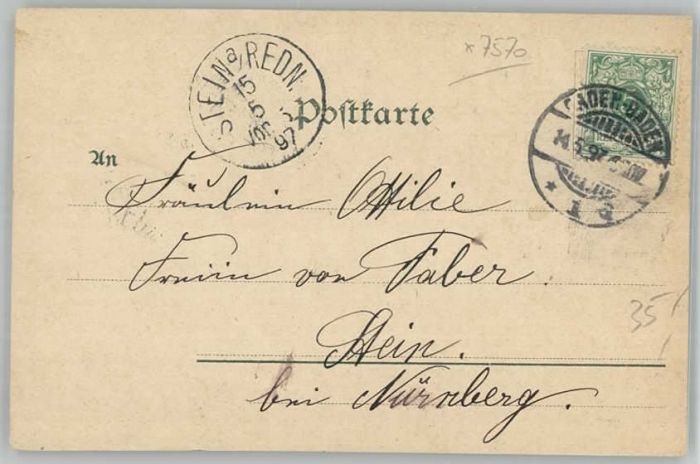 *7570
STEIN a/REDN.
15
5
97
Postkarte
BADEN-BADEN
14.5.97
* 1 d
An
Fräulein Ottilie
Freiin von Faber.
Stein.
bei Nürnberg.
35